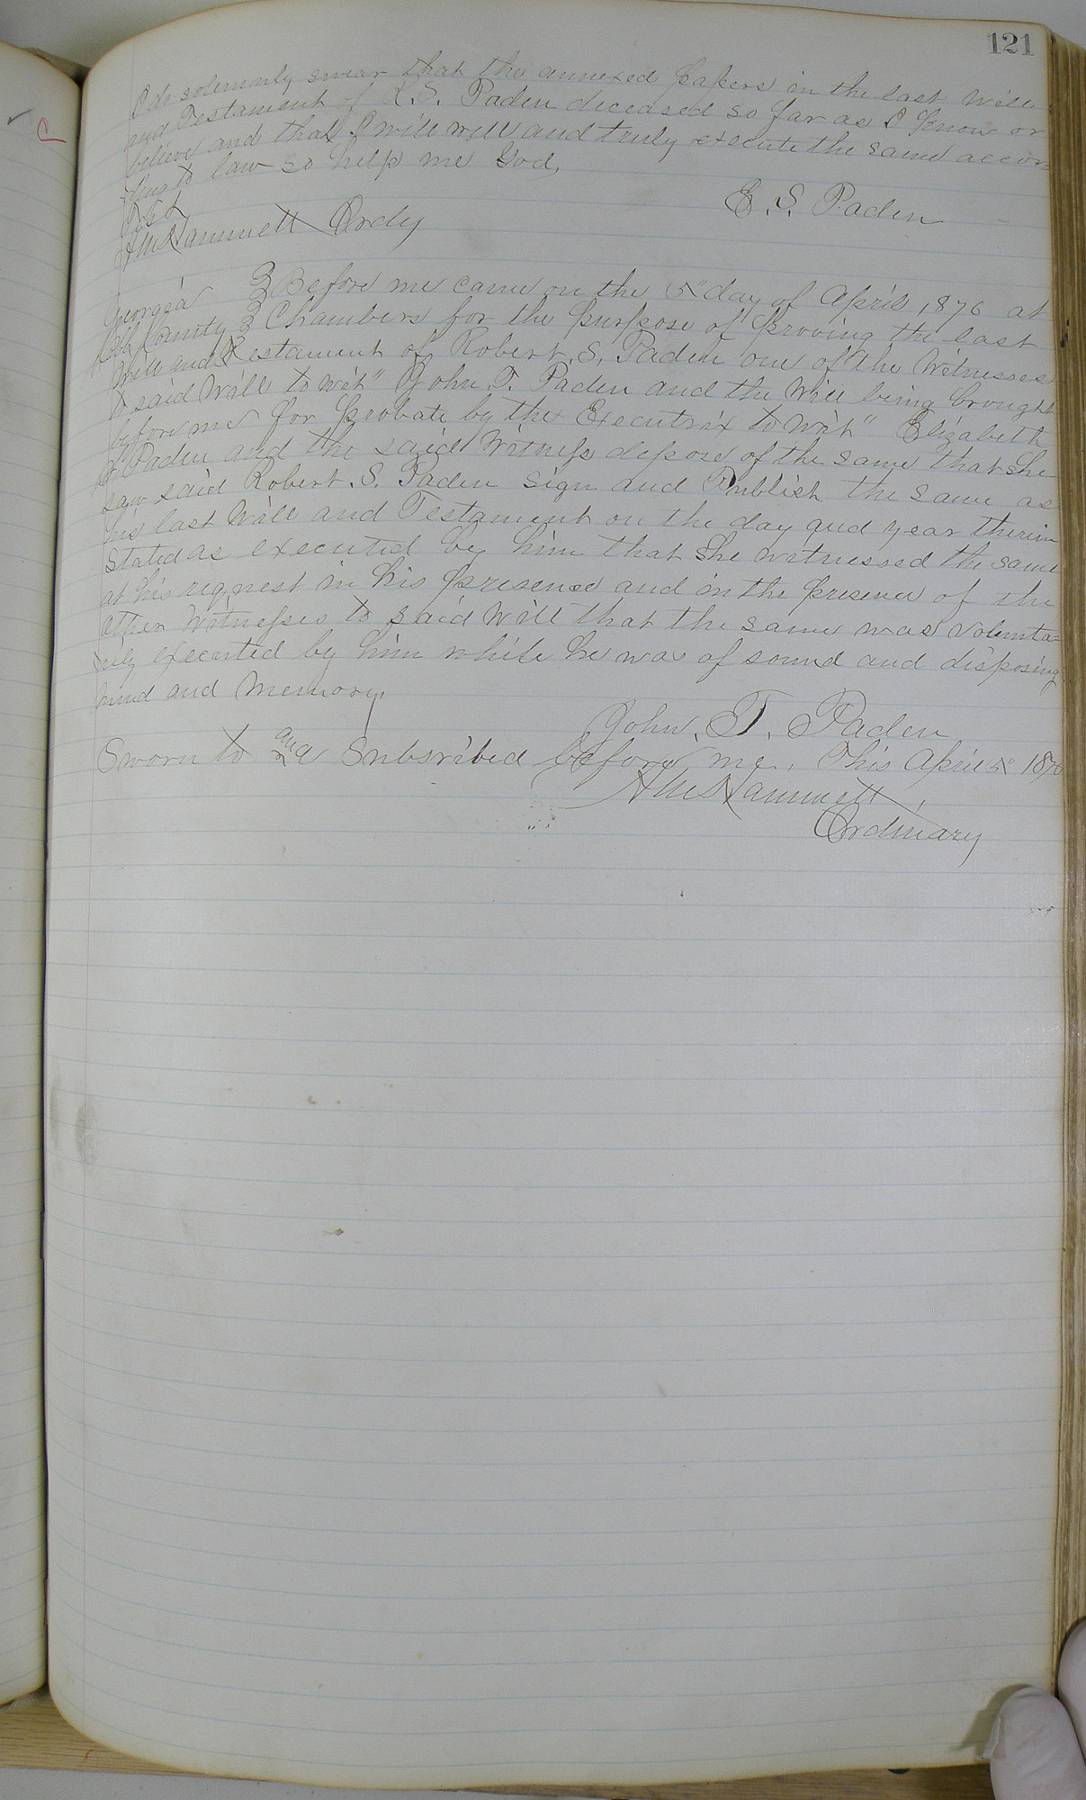 121
I do solemnly swear that the annexed papers in the last Will
and Testament of R. S. Paden deceased so far as I know or
believe and that I will well and truly execute the same accor-
ding to law so help me God.
E. S. Paden
Hammett Ordy
Georgia } Before me came on the 5" day of April, 1876 at
Cobb County } Chambers for the purpose of proving the last
Will and Testament of Robert. S. Paden one of the Witnesses
to said Will to wit" John. T. Paden and the Will being brought
before me for probate by the Executrix to wit" Elizabeth
S Paden and the said Witness depose of the same that she
saw said Robert. S. Paden sign and Publish the same as
his last Will and Testament on the day and year therein
stated as executed by him that she witnessed the same
at his request in his presence and in the presence of the
other Witnesses to said Will that the same was volunta-
rily executed by him while he was of sound and disposing
mind and memory.
John. T. Paden
Sworn to and Subsribed before me. This April 5" 1876
Hammett
Ordinary